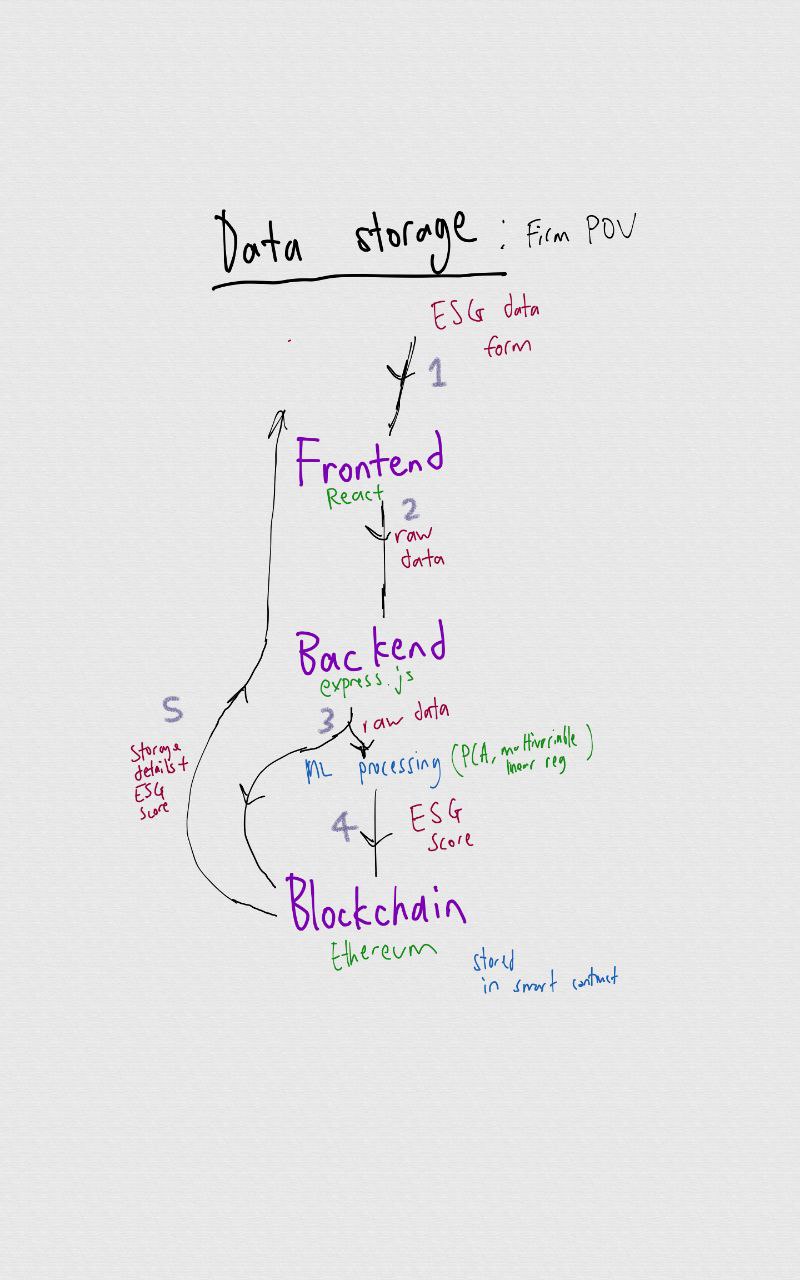 Data storage : Firm POV
ESG data
form
1
Frontend
React
2
raw
data
Backend
express.js
3
raw data
ML processing (PCA, multivariable
linear reg)
4
ESG
score
5
Storage
details +
ESG
score
Blockchain
Ethereum
stored
in smart contract